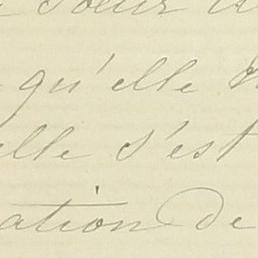 sœur
qu'elle
elle s'est
ation de